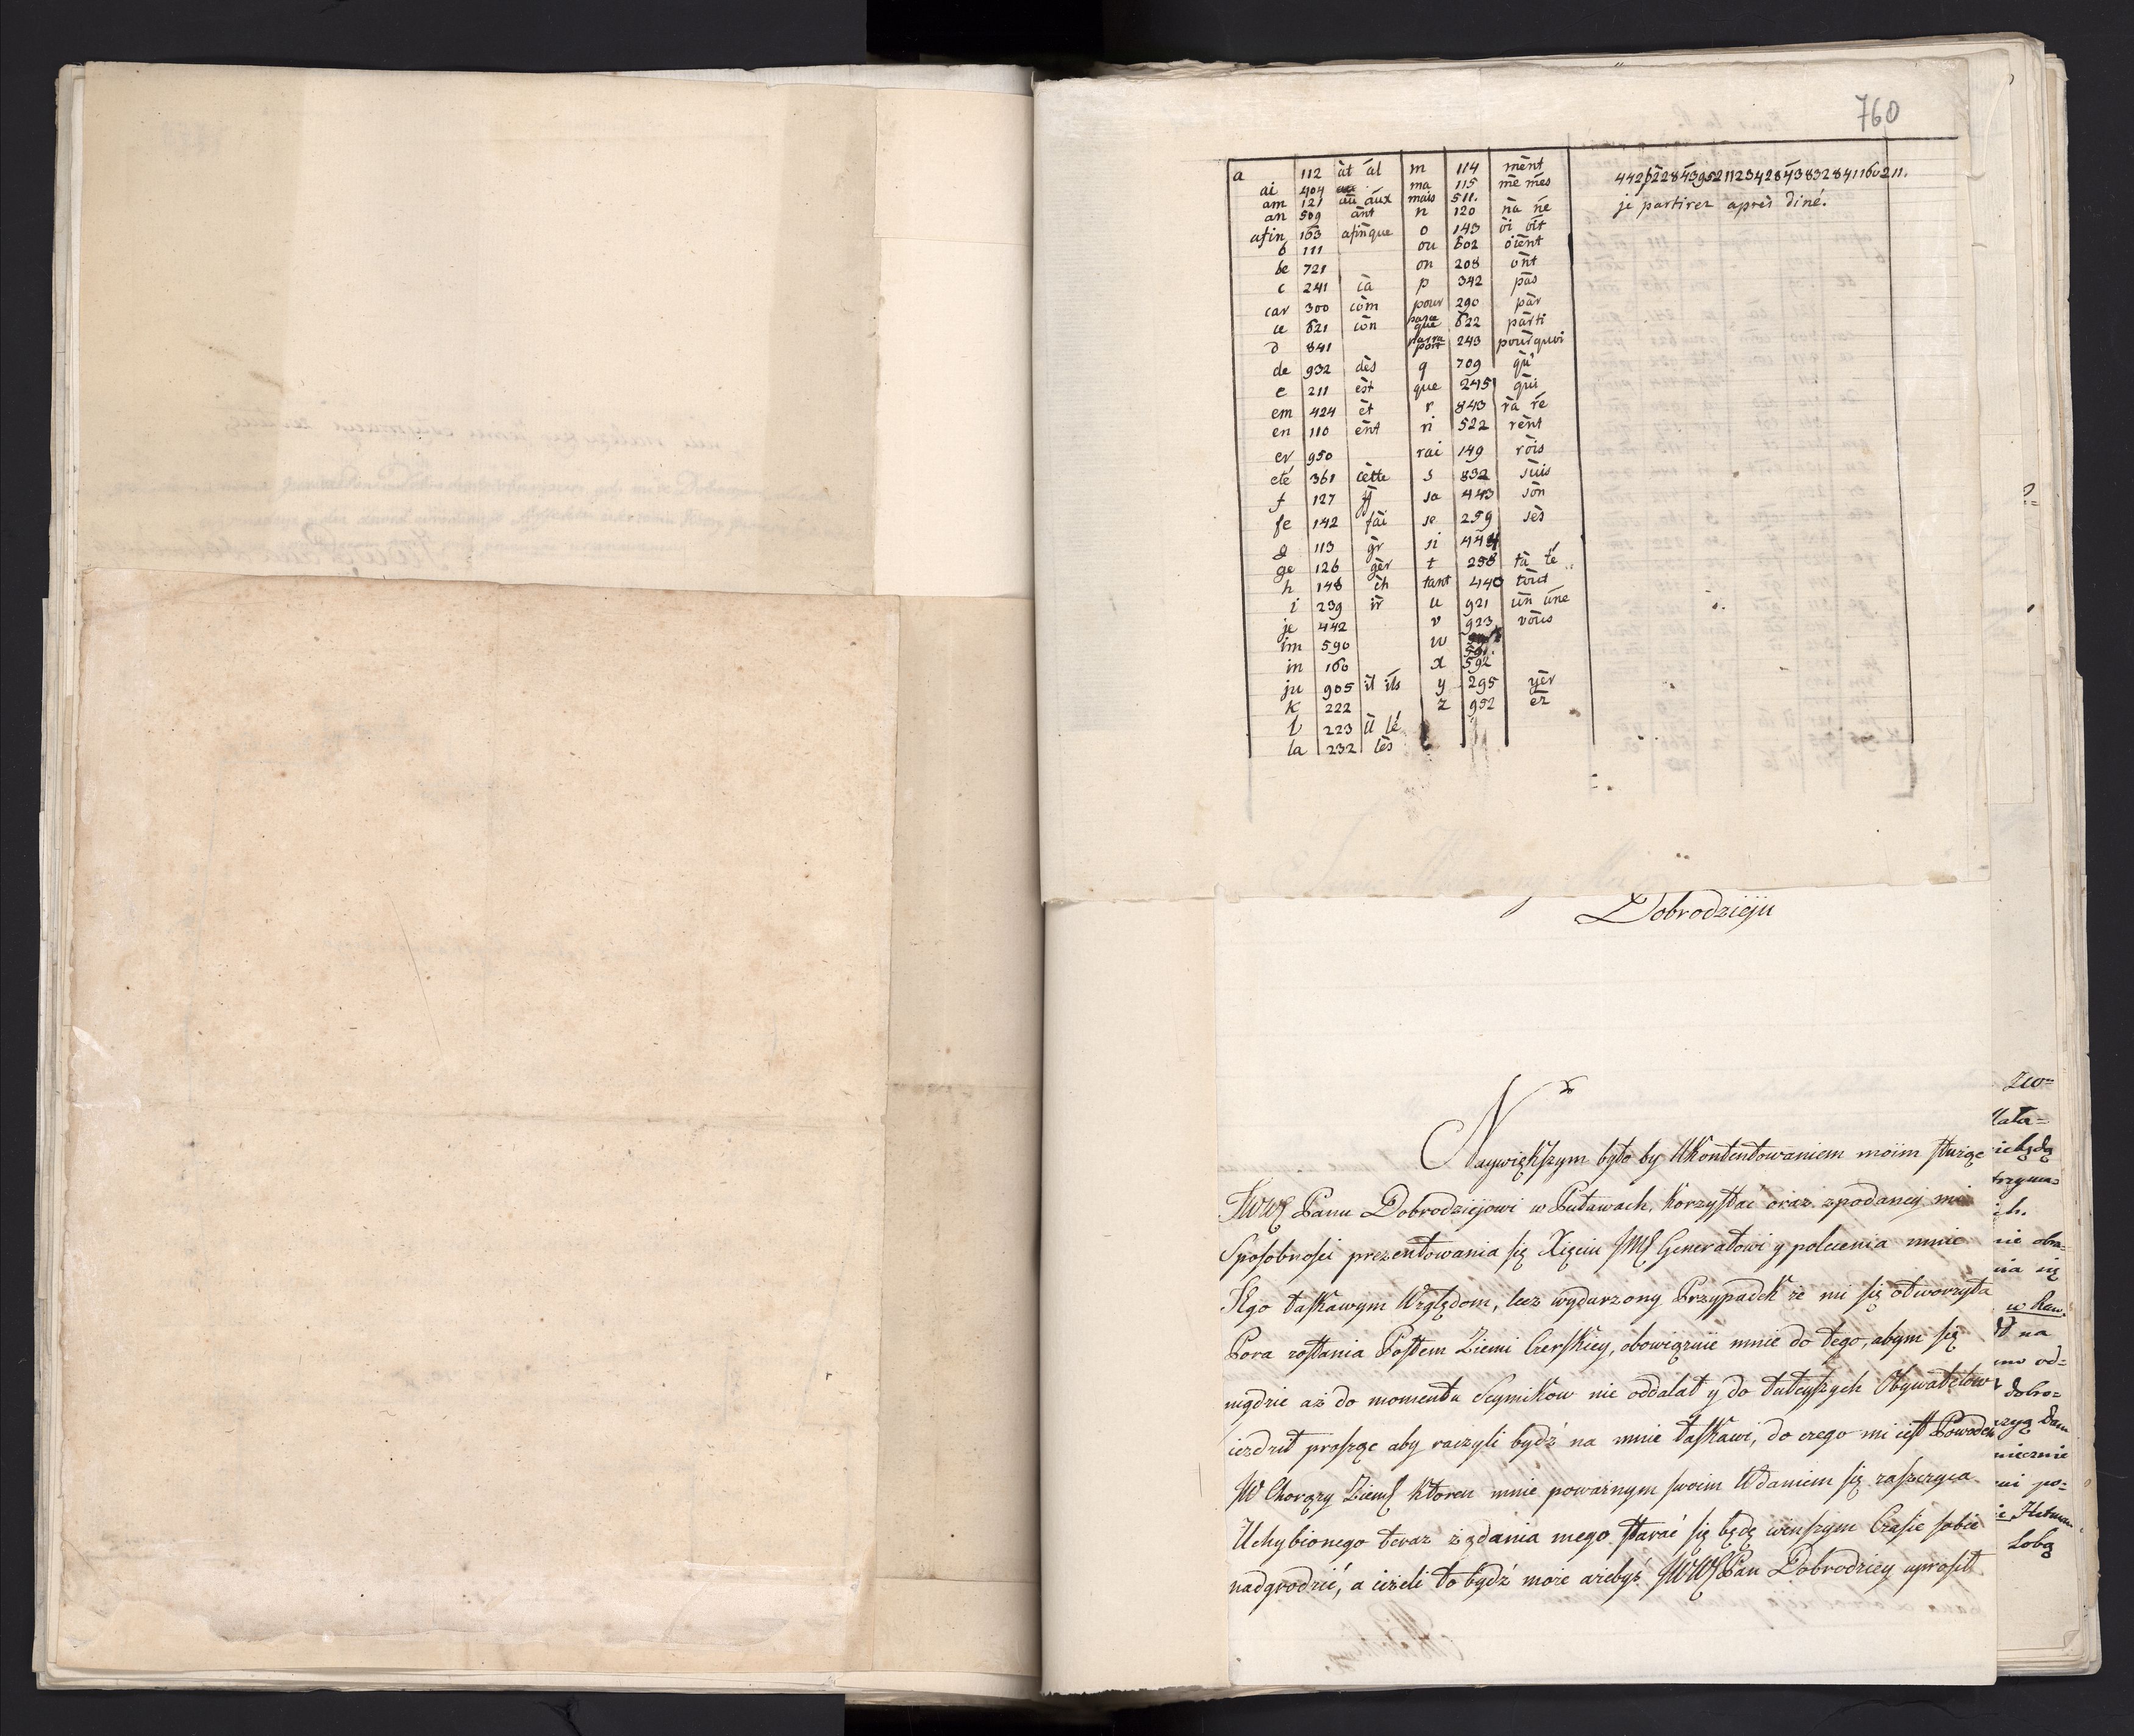 760
a 112 āt ál m 114 mēnt
ai 404 ma 115 mē més
am 121 aū áux mais 511.
an 509 ānt n 120 nā né
afin 163 afin̄que o 143 ōi óit
b 111 ou 602 oīent
be 721 on 208 ōnt
c 241 cā p 342 pās
car 300 cōm pour 290 pār
ce 621 cōn que 622 pārti
d 841 port 243 pour̄quoi
de 932 dēs q 709 qū
e 211 ēst que 245 quī
em 424 ēt r 843 rā ré
en 110 ēnt ri 522 rēnt
er 950 rai 149 rōis
eté 361 cētte s 832 sūis
f 127 f̄f sa 443 sōn
fe 142 fāi se 259 sēs
g 113 ḡr si 444
ge 126 gēr t 258 tā té
h 148 c̄h tant 440 toūt
i 239 īr u 921 ūn úne
je 442 v 923 voūs
im 590 w 591.
in 160 x 592
ju 905 īl íls y 295 yēr
k 222 z 992 ēz
l 223 l̄l lé
la 232 lēs
442 6̄22 8́43 952 112 342 8́43 832 841 160 211.
je partirez après diné.
Dobrodzieju
Naywiękſzym było by Ukontentowaniem moim ſłużąc
JWWſ Panu Dobrodziejowi w Puławach, korzyſtać oraz zpodaney mi
Spoſobnoſci prezentowania ſię Xięciu JMſ Generałowi y polecenia mnie
Jego łaſkawym Względom, lecz wydarzony Przypadek że mi ſię otworzyła
Pora zoſtania Poſłem Ziemi Czerſkiey, obowięzuie mnie do tego, abym ſię
nigdzie aż do momentu Seymików nie oddalał y do tuteyſzych Obywatelow
ieździł proſząc aby raczyli bydź na mnie łaſkawi, do czego mi ieſt Powodem
JW Chorąży Ziemſ ktoren mnie poważnym ſwoim Udaniem ſię zaſzczyca
Uchybionego teraz żądania mego ſtarać ſię będę winſzym Czaſie ſobie
nadgrodzić, a ieżeli to bydź może ażebyś JWWſ Pan Dobrodziey uproſił